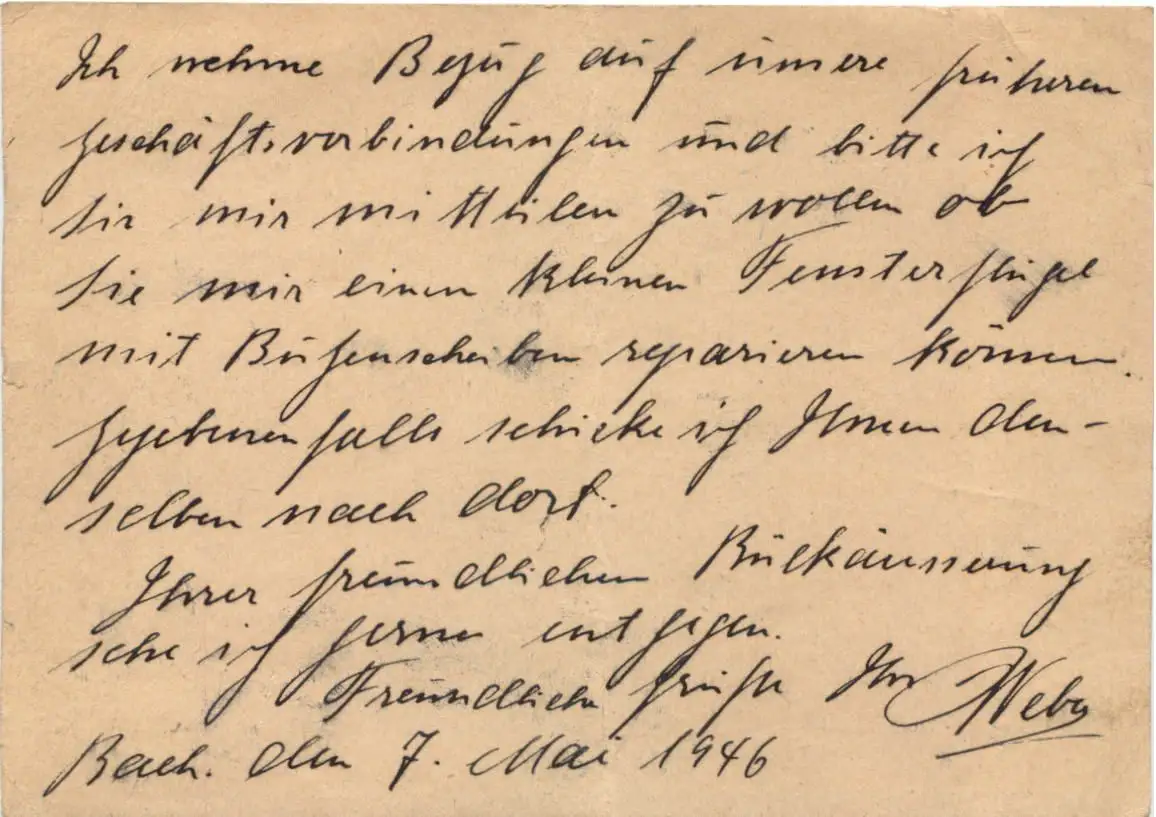 Ich nehme Bezug auf unsere früheren
Geschäftsverbindungen und bitte ich
Sie mir mitteilen zu wollen ob
Sie mir einen kleinen Fensterflügel
mit Butzenscheiben reparieren können.
Gegebenenfalls schicke ich Ihnen den-
selben nach dort.
Ihrer freundlichen Rückäusserung
sehe ich gerne entgegen.
Freundliche Grüße Ihr Weber
Bach. den 7. Mai 1946